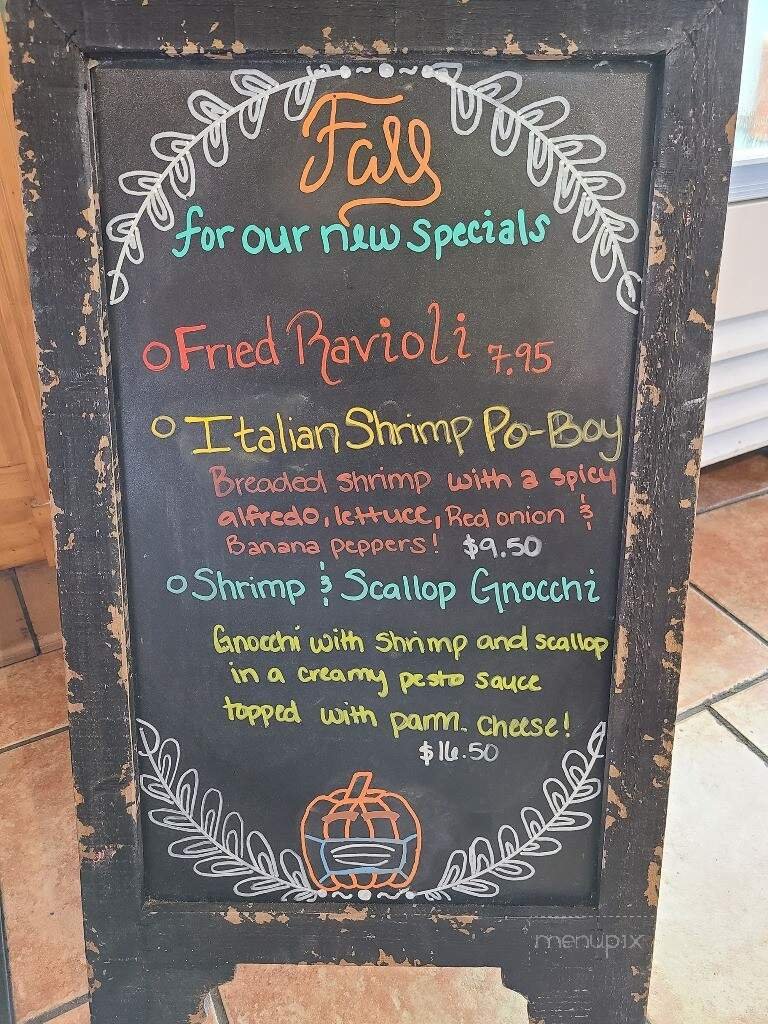 Fall
for our new specials
Fried Ravioli 7.95
Italian Shrimp Po-Boy
Breaded shrimp with a spicy
alfredo, lettuce, Red onion &
Banana peppers! $9.50
Shrimp & Scallop Gnocchi
Gnocchi with shrimp and scallop
in a creamy pesto sauce
topped with parm. cheese!
$16.50
menupix